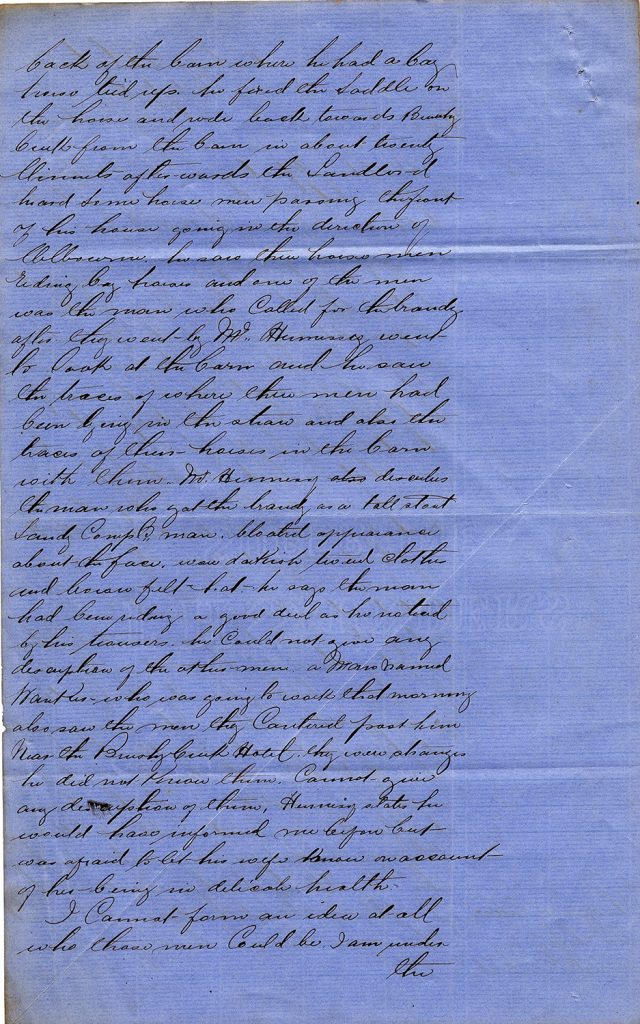 back of the barn where he had a bay
horse tied up. he fixed the Saddle on
the horse and rode back towards Brushy
Creek from the barn in about twenty
Minuets afterwards the Landlord
heard some horse men passing the front
of his house going in the direction of
Melbourne. he saw three horse men
Riding bay horses and one of the men
was the man who Called for the brandy
after they went by Mr. Hennessy went
to look at the barn and he saw
the traces of where three men had
been lying in the straw and also the
traces of three horses in the barn
with them. Mr. Hennessy also describes
the man who got the brandy as a tall stout
Sandy Comp. man. bloated appearance
about the face. wore darkish tweed clothes
and brown felt hat he says the man
had been riding a good deel as he noticed
by his trousers. he could not give any
description of the other men. a Man named
who was going to work that morning
also saw the men they Cantered past him
Near the Brushy Creek Hotel. they were strangers
he did not know them. Cannot give
any description of them, Hennessy states he
would have informed me before but
was afraid to let his wife know on account
of her being in delicate health.
I Cannot form an idea at all
who those men Could be. I am under
the